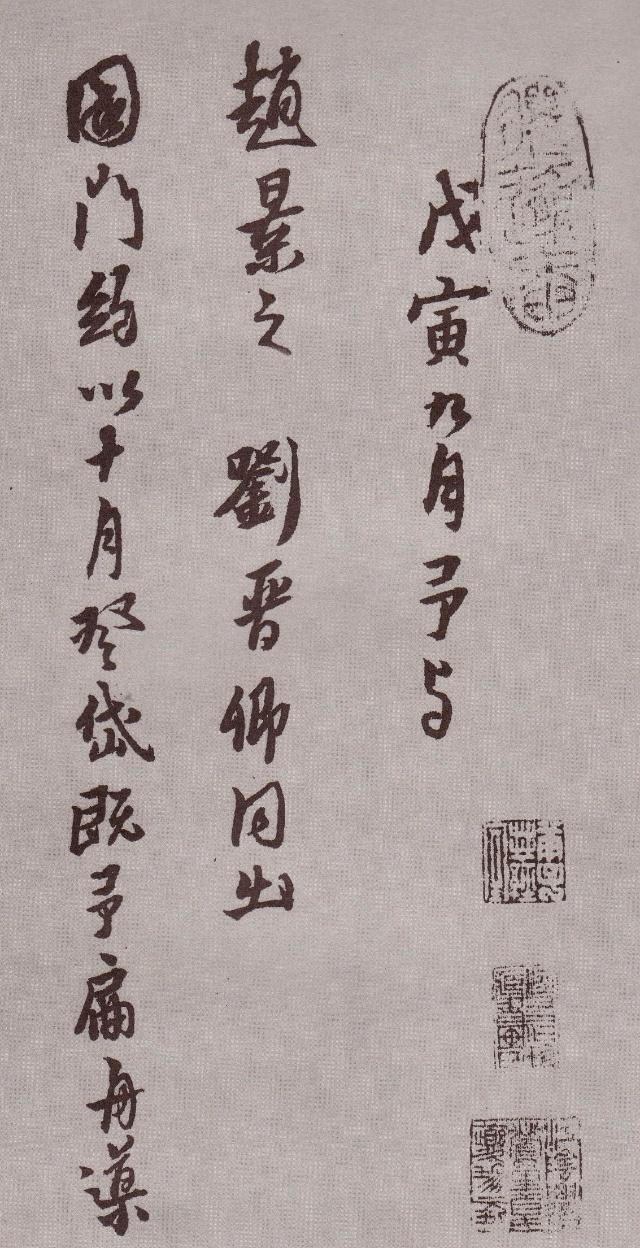 戊寅九月予与
趙景之 劉晋卿同出
國門約以十月登岱既予扁舟